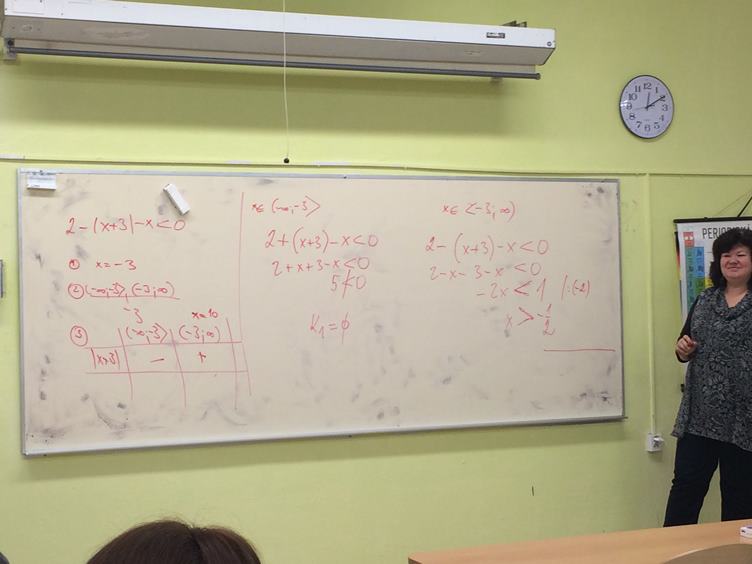 2-|x+3|-x<0
① x=-3
② (-∞;-3> (-3;∞)
-3
x=10
③ (-∞;-3> (-3;∞)
|x+3| - +
x∈(-∞;-3>
2+(x+3)-x<0
2+x+3-x<0
5≮0
K₁=∅
x∈<-3;∞)
2-(x+3)-x<0
2-x-3-x<0
-2x<1 /:(-2)
x>-1/2
12
1
2
3
4
5
6
7
8
9
10
11